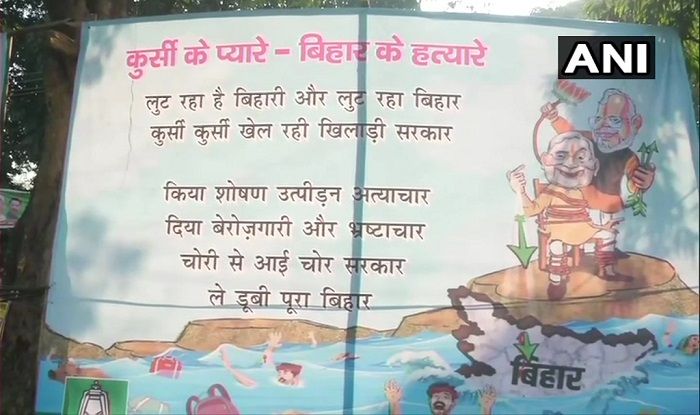 ANI
कुर्सी के प्यारे - बिहार के हत्यारे
लुट रहा है बिहारी और लुट रहा बिहार
कुर्सी कुर्सी खेल रही खिलाड़ी सरकार
किया शोषण उत्पीड़न अत्याचार
दिया बेरोज़गारी और भ्रष्टाचार
चोरी से आई चोर सरकार
ले डूबी पूरा बिहार
बिहार